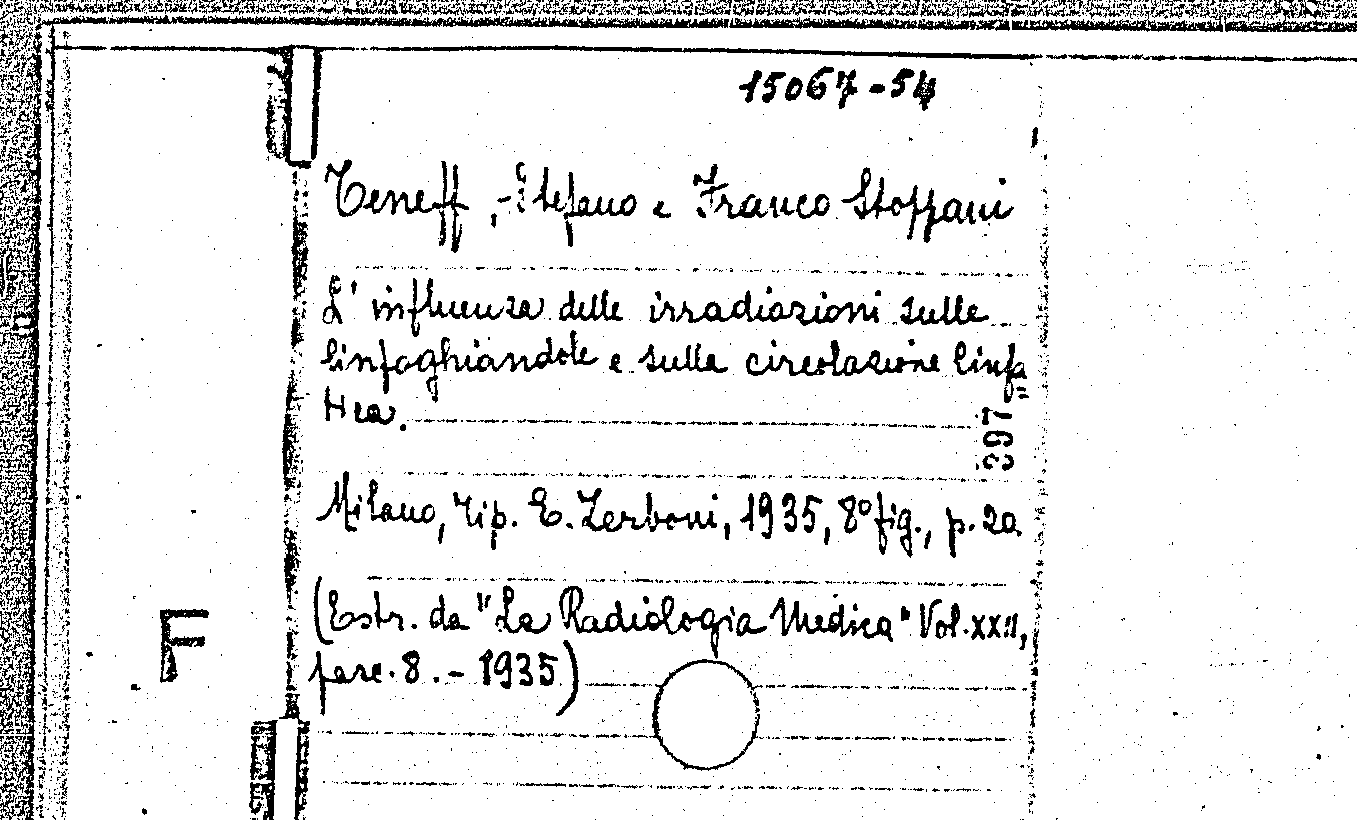 15067-54
Teneff, Stefano e Franco Stoppani
L'influenza delle irradiazioni sulle
linfoghiandole e sulla circolazione linfa
tica.
397
Milano, Tip. E. Zerboni, 1935, 8º fig., p. 20
F
(Estr. da "La Radiologia Medica" Vol. XXII,
fasc. 8. - 1935)